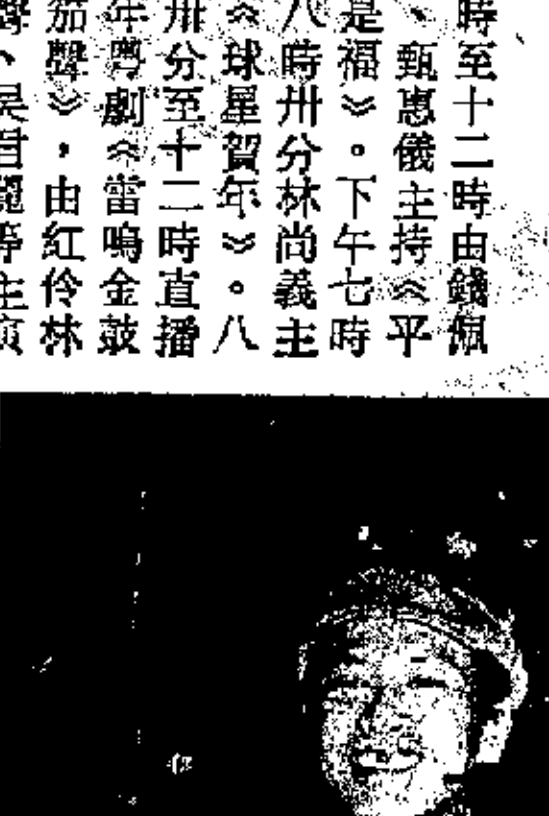 時至十二時由錢佩
、甄惠儀主持《平
是福》。下午七時
八時卅分林尚義主
《球星賀年》。八
卅分至十二時直播
年粵劇《雷鳴金鼓
笳聲》，由紅伶林
聲、吳君麗等主演